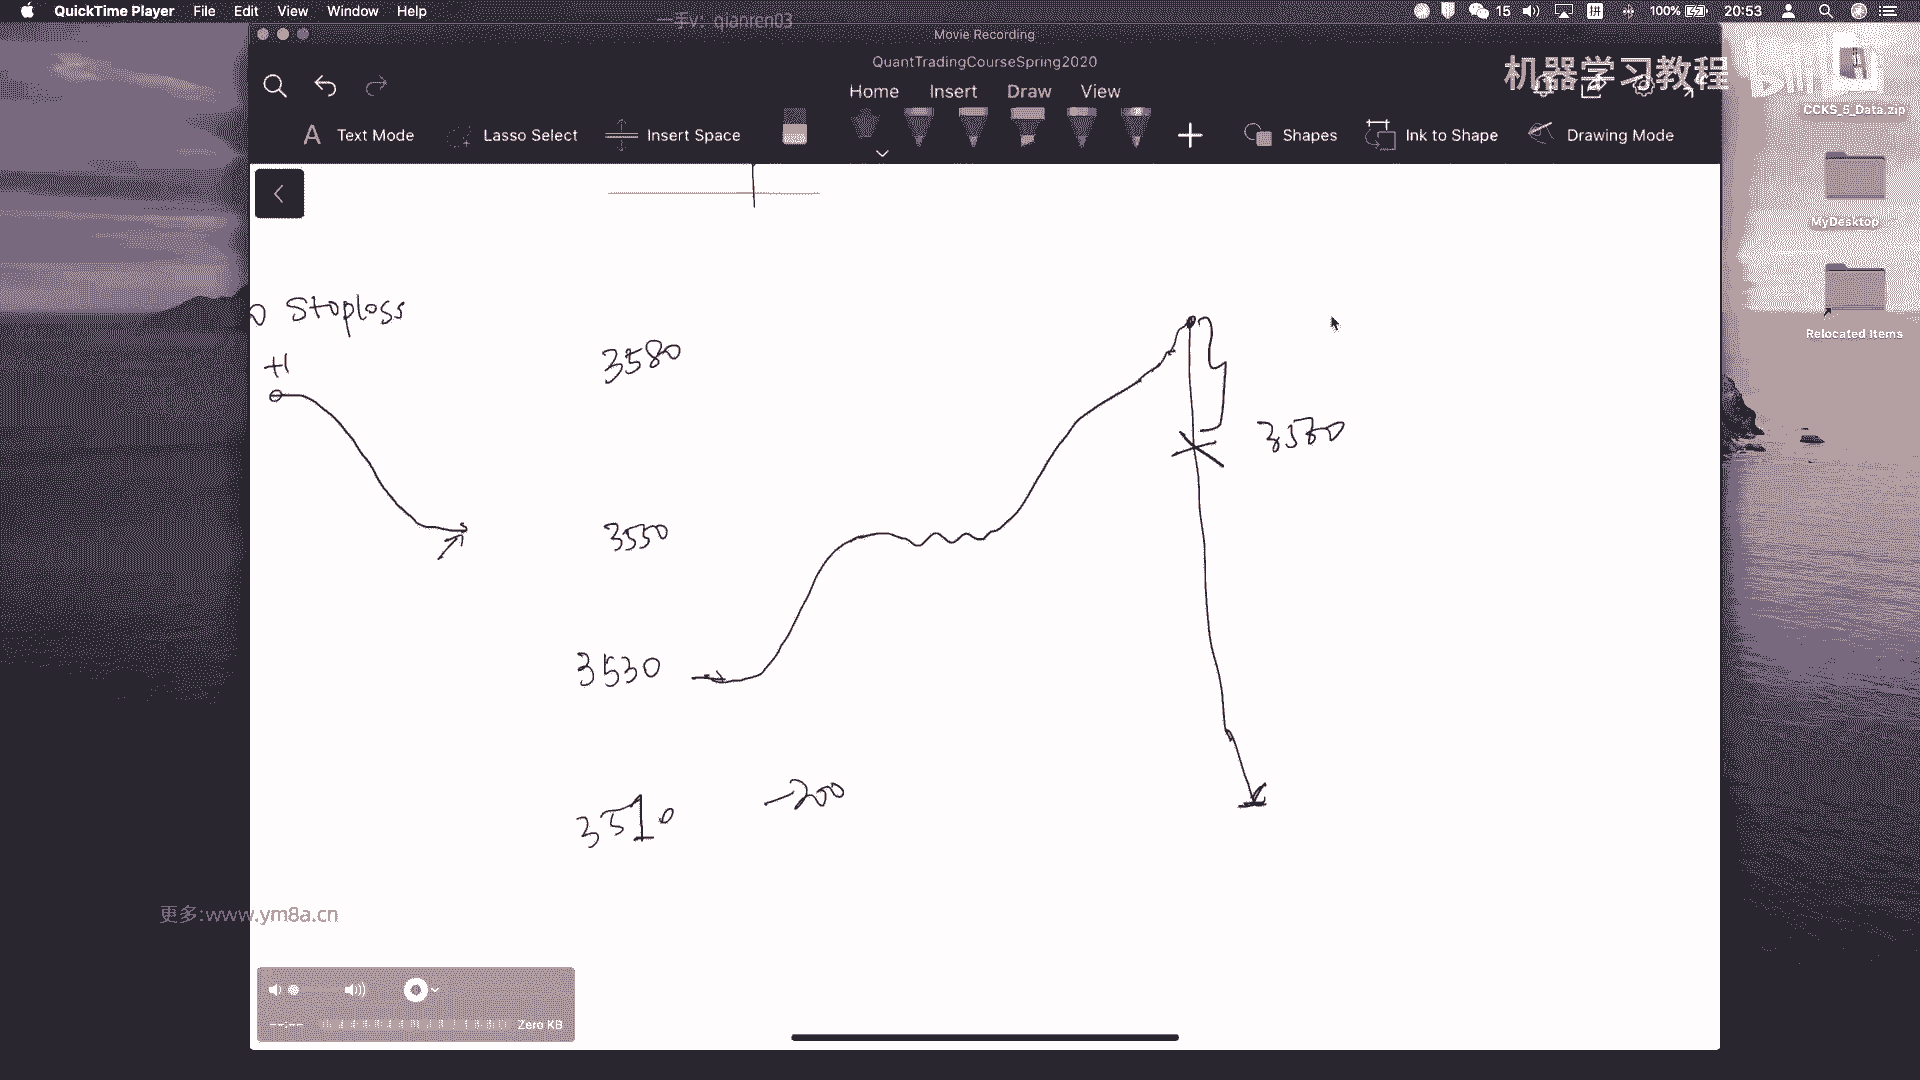 QuickTime Player File Edit View Window Help
15 100% 20:53
一手v：qianren03
Movie Recording
QuantTradingCourseSpring2020
机器学习教程
Home Insert Draw View
CCKS_5_Data.zip
A Text Mode Lasso Select Insert Space Shapes Ink to Shape Drawing Mode
MyDesktop
Relocated Items
Stoploss
+1
3580
3550
3530
3510
-200
更多:www.ym8a.cn
--:-- Zero KB